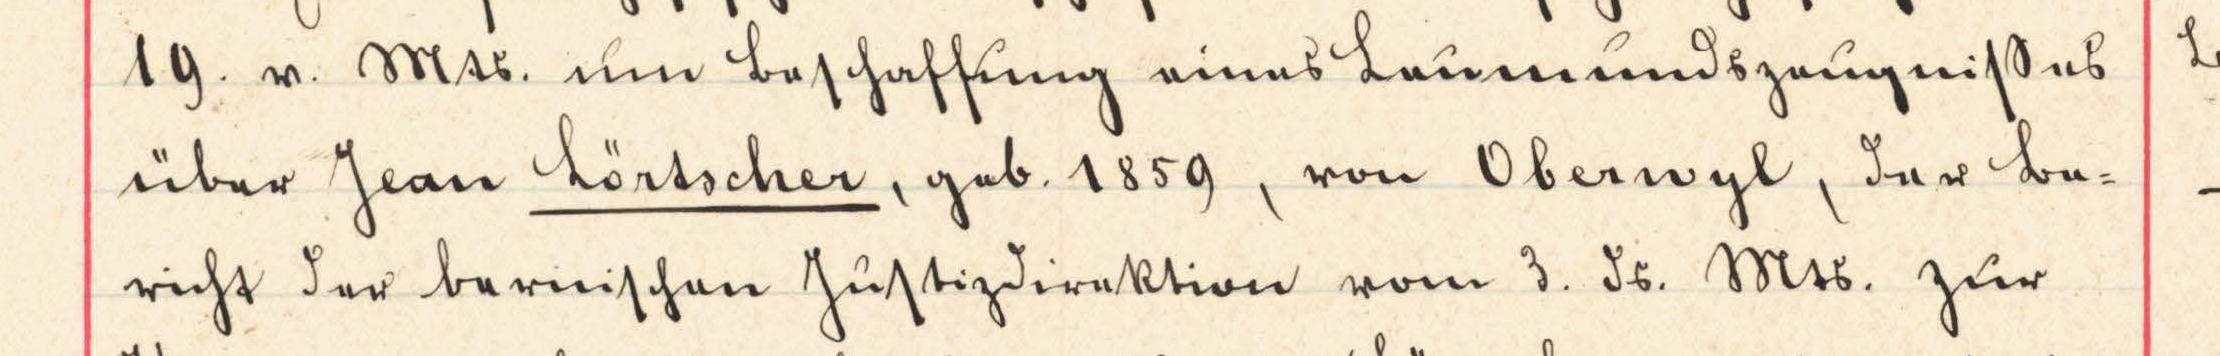 19. v. Mts. um Beschaffung eines Leumundszeugnißes
über Jean Lörtscher, geb. 1859, von Oberwyl, der Be-
richt der bernischen Justizdirektion vom 3. ds. Mts. zur